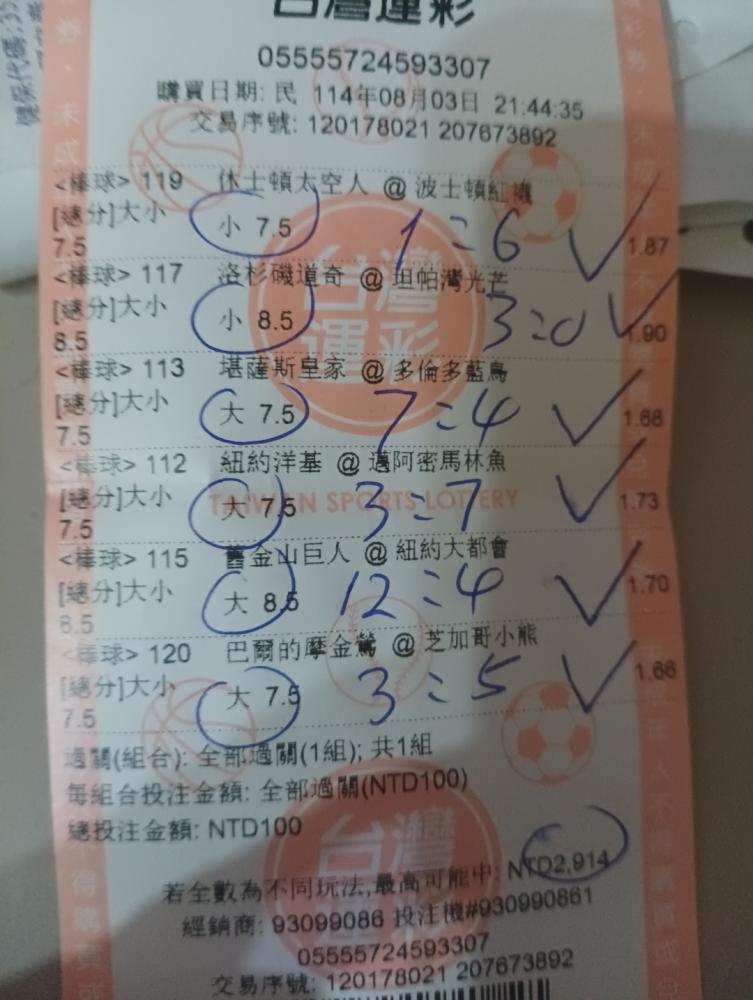 台灣運彩
05555724593307
購買日期: 民 114年08月03日 21:44:35
交易序號: 120178021 207673892
<棒球> 119 休士頓太空人 @ 波士頓紅襪
[總分]大小 小 7.5 1=6 ✓
7.5 1.87
<棒球> 117 洛杉磯道奇 @ 坦帕灣光芒
[總分]大小 小 8.5 3=0 ✓
8.5 1.90
<棒球> 113 堪薩斯皇家 @ 多倫多藍鳥
[總分]大小 大 7.5 7=4 ✓
7.5 1.68
<棒球> 112 紐約洋基 @ 邁阿密馬林魚
[總分]大小 大 7.5 3=7 ✓
7.5 1.73
TAIWAN SPORTS LOTTERY
<棒球> 115 舊金山巨人 @ 紐約大都會
[總分]大小 大 8.5 12=4 ✓
8.5 1.70
<棒球> 120 巴爾的摩金鶯 @ 芝加哥小熊
[總分]大小 大 7.5 3=5 ✓
7.5 1.66
過關(組合): 全部過關(1組); 共1組
每組合投注金額: 全部過關(NTD100)
總投注金額: NTD100
若全數為不同玩法,最高可能中: NTD2,914
經銷商: 93099086 投注機#930990861
05555724593307
交易序號: 120178021 207673892
台灣運彩
台灣